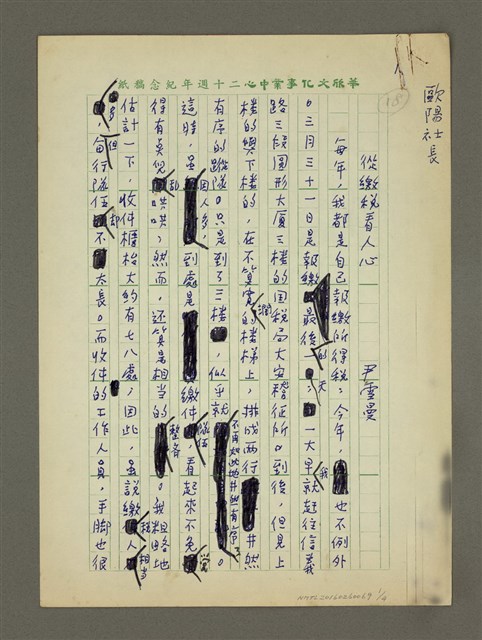 歐陽社長
華欣文化事業中心二十週年紀念稿紙
15
從繳稅看人心
尹雪曼
每年，我都是自己報繳所得稅。今年，也不例外
。三月三十一日是報繳最後的一天；一大早我就趕往信義
路三段圓形大廈三樓的國稅局大安稽征所。到後，但見上
樓的與下樓的，在不算寬闊的樓梯上，排成兩行井然
有序的蹤隊。只是到了三樓，似乎就不再如此地井然有序了。
這時，因人多，到處是繳件隊伍，看起來不免
得有莫兒亂哄哄；然而，還算是相當的整齊。我粗略地
估計一下，收件櫃枱大約有七八處，因此，雖說繳稅人相當
多，但每行隊伍却不太長。而收件的工作人員，手脚也很
NMTL20160260069 1/4